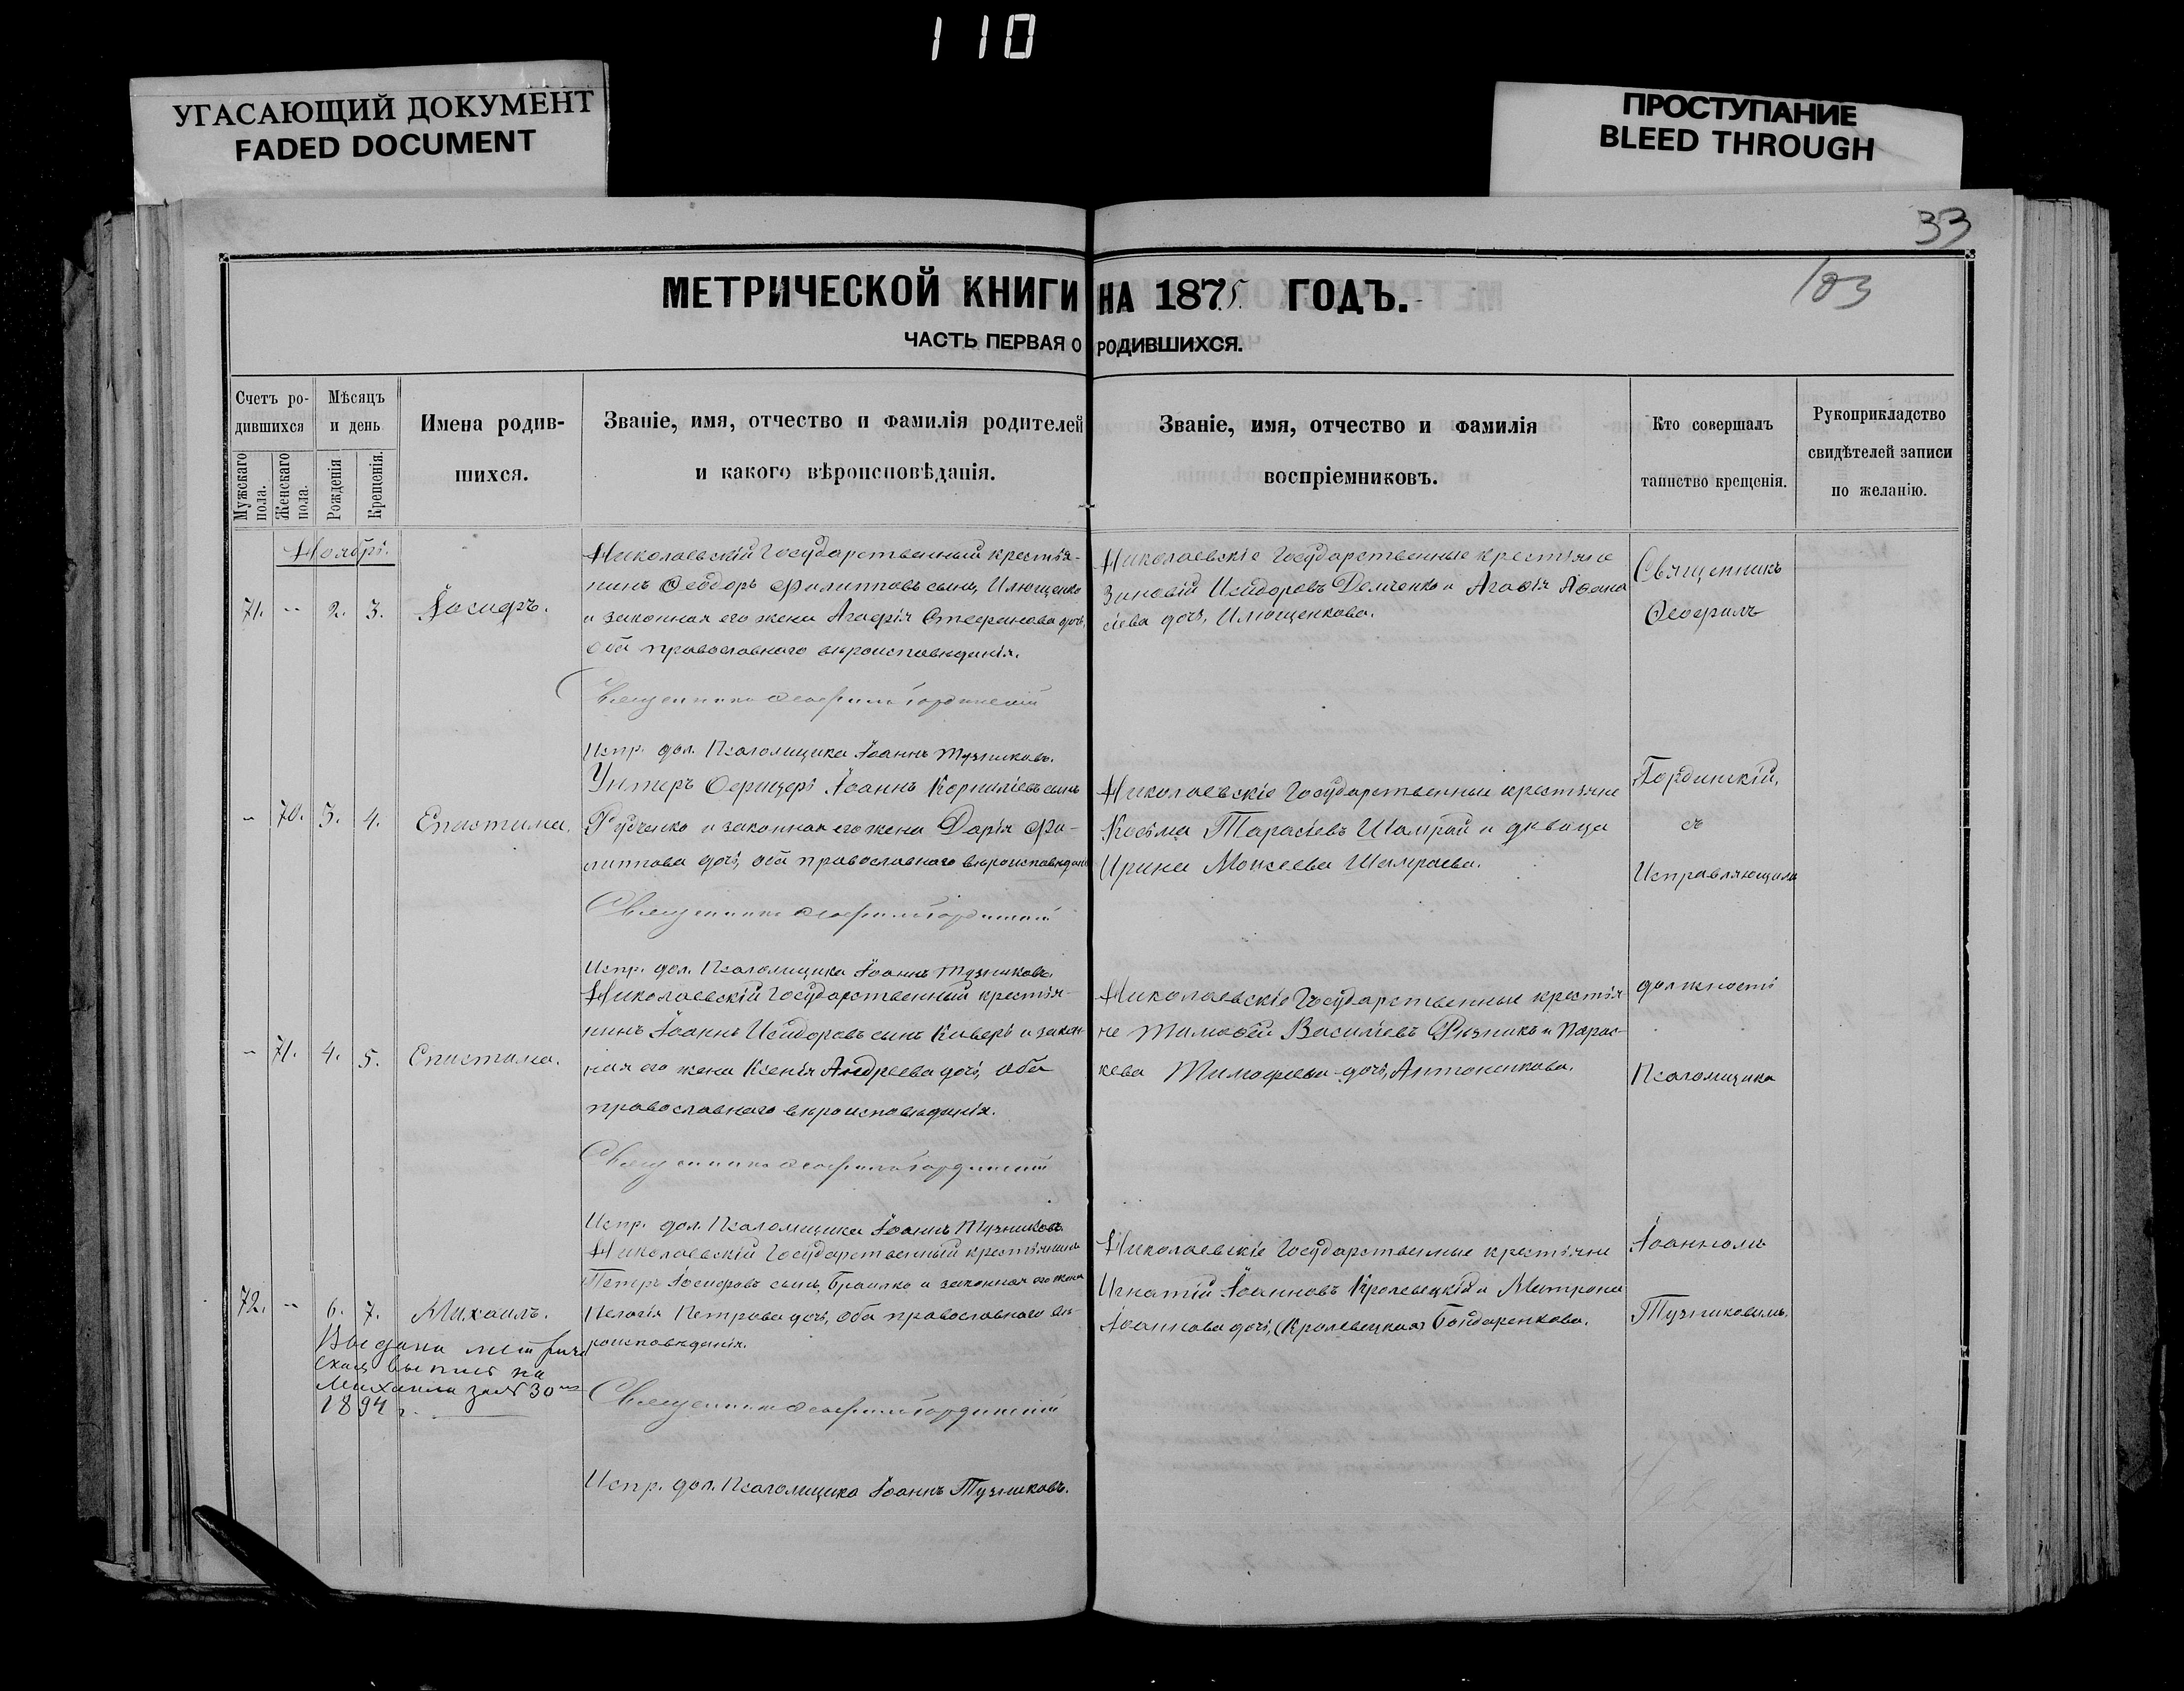 110
УГАСАЮЩИЙ ДОКУМЕНТ
FADED DOCUMENT
ПРОСТУПАНИЕ
BLEED THROUGH
33
103
МЕТРИЧЕСКОЙ КНИГИ НА 1875. ГОДЪ.
ЧАСТЬ ПЕРВАЯ О РОДИВШИХСЯ.
Счетъ ро-
дившихся
Мужскаго пола.
Женскаго пола.
Мѣсяцъ
и день
Рожденія
Крещенія.
Имена родив-
шихся.
Званіе, имя, отчество и фамилія родителей
и какого вѣроисповѣданія.
Званіе, имя, отчество и фамилія
воспріемниковъ.
Кто совершалъ
таинство крещенія.
Рукоприкладство
свидѣтелей записи
по желанію.
Ноябрь.
71. -- 2. 3. Іосифъ.
Николаевскій Государственный крестья-
нинъ Ѳеодоръ Филипповъ сынъ, Илющенко
и законная его жена Агафія Стефанова дочь,
оба православнаго вѣроисповѣданія.
Священникъ Ѳеофилъ Гординскій
Испр. дол. Псаломщика Іоаннъ Тузниковъ.
Николаевскіе Государственные крестьяне
Зиновій Исидоровъ Демченко и Агафія Аѳана
сіева дочь, Илющенкова.
Священникъ
Ѳеофилъ
- 70. 3. 4. Епистимія.
Унтеръ Офицеръ Іоаннъ Корниліевъ сынъ
Рудченко и законная его жена Дарія Фи-
липпова дочь, оба православнаго вѣроисповѣдан
Священникъ Ѳеофилъ Гординскій
Испр. дол. Псаломщика Іоаннъ Тузниковъ.
Николаевскіе Государственные крестьяне
Косьма Тарасіевъ Шамрай и дѣвица
Ирина Моисеева Шамраева.
Гординскій,
съ
Исправляющимъ
- 71. 4. 5. Епистимія.
Николаевскій Государственный крестья-
нинъ Іоаннъ Исидоровъ сынъ Киверь и закон-
ная его жена Ксенія Андреева дочь, оба
православнаго вѣроисповѣданія.
Священникъ Ѳеофилъ Гординскій
Испр. дол. Псаломщика Іоаннъ Тузниковъ.
Николаевскіе Государственные крестья
не Тимоѳей Василіевъ Рѣзникъ и Парас-
кева Тимофеева дочь, Антоненкова.
должность
Псаломщика
72. -- 6. 7. Михаилъ.
Николаевскій Государственный крестьянинъ
Петръ Іосифовъ сынъ, Браилко и законная его жена
Пелагія Петрова дочь, оба православнаго вѣ-
роисповѣданія.
Священникъ Ѳеофилъ Гординскій
Испр. дол. Псаломщика Іоаннъ Тузниковъ.
Николаевскіе Государственные крестьяне
Игнатій Іоанновъ Кролевецкій и Матрона
Іоаннова дочь, (Кролевецкая) Бондаренкова.
Іоанномъ
Тузниковымъ.
Выдана метриче
ская выпись на
Михаила за № 30
1894 г.